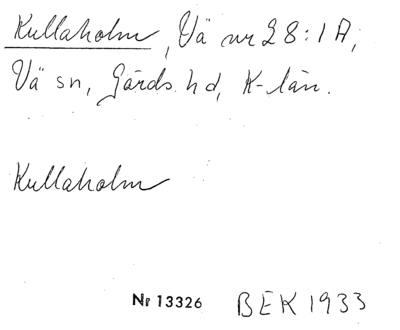 Kullaholm, Vä nr 28:1A,
Vä sn, Gärds hd, K-län.
Kullaholm
Nr 13326 BEK 1933